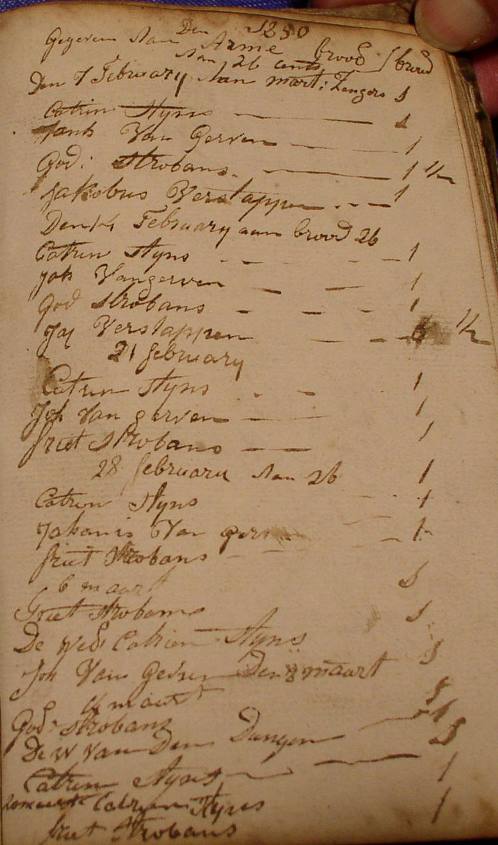 Den 1850
Gegeven Aan Arme brood
Aan 26 cents brood
Den 7 February Aan mart: Zengers 1
Catrin Hyns 1
Van Gerven 1
God: Strobans 1 1/2
Jakobus Verstappen 1
Den 14 February aan brood 26
Catrin Hyns 1
Joh Vangerven 1
God Strobans 1
Jaj Verstappen 1/2
21 february
Catrin Hyns 1
Joh Van gerven 1
friet Strobans 1
28 february Aan 26 1
Catrin Hyns 1
Johanis Van gerven 1
friet Strobans
6 maart 1
Griet Strobans 1
De wed Catrien Hyns 1
Joh Van Gerven Den 8 maart 1
maart
God: Strobans 1
De W Van Den Dungen 1
Catrin Hyns 1
Catryn Hyns 1
friet Strobans